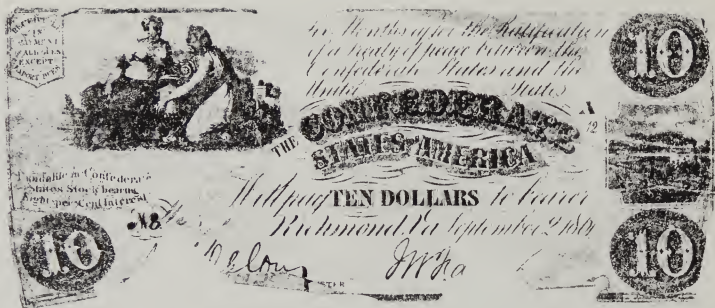 RECEIVABLE
IN
PAYMENT
OF ALL DUES
EXCEPT
EXPORT DUTIES
Six Months after the Ratification
of a treaty of peace between the
Confederate States and the
United States
10
THE CONFEDERATE
STATES AMERICA
A
12
Fundable in Confederate
States Stock bearing
Eight per Cent Interest
Will pay TEN DOLLARS to bearer
No
Richmond, Va September 2 1861
10
10